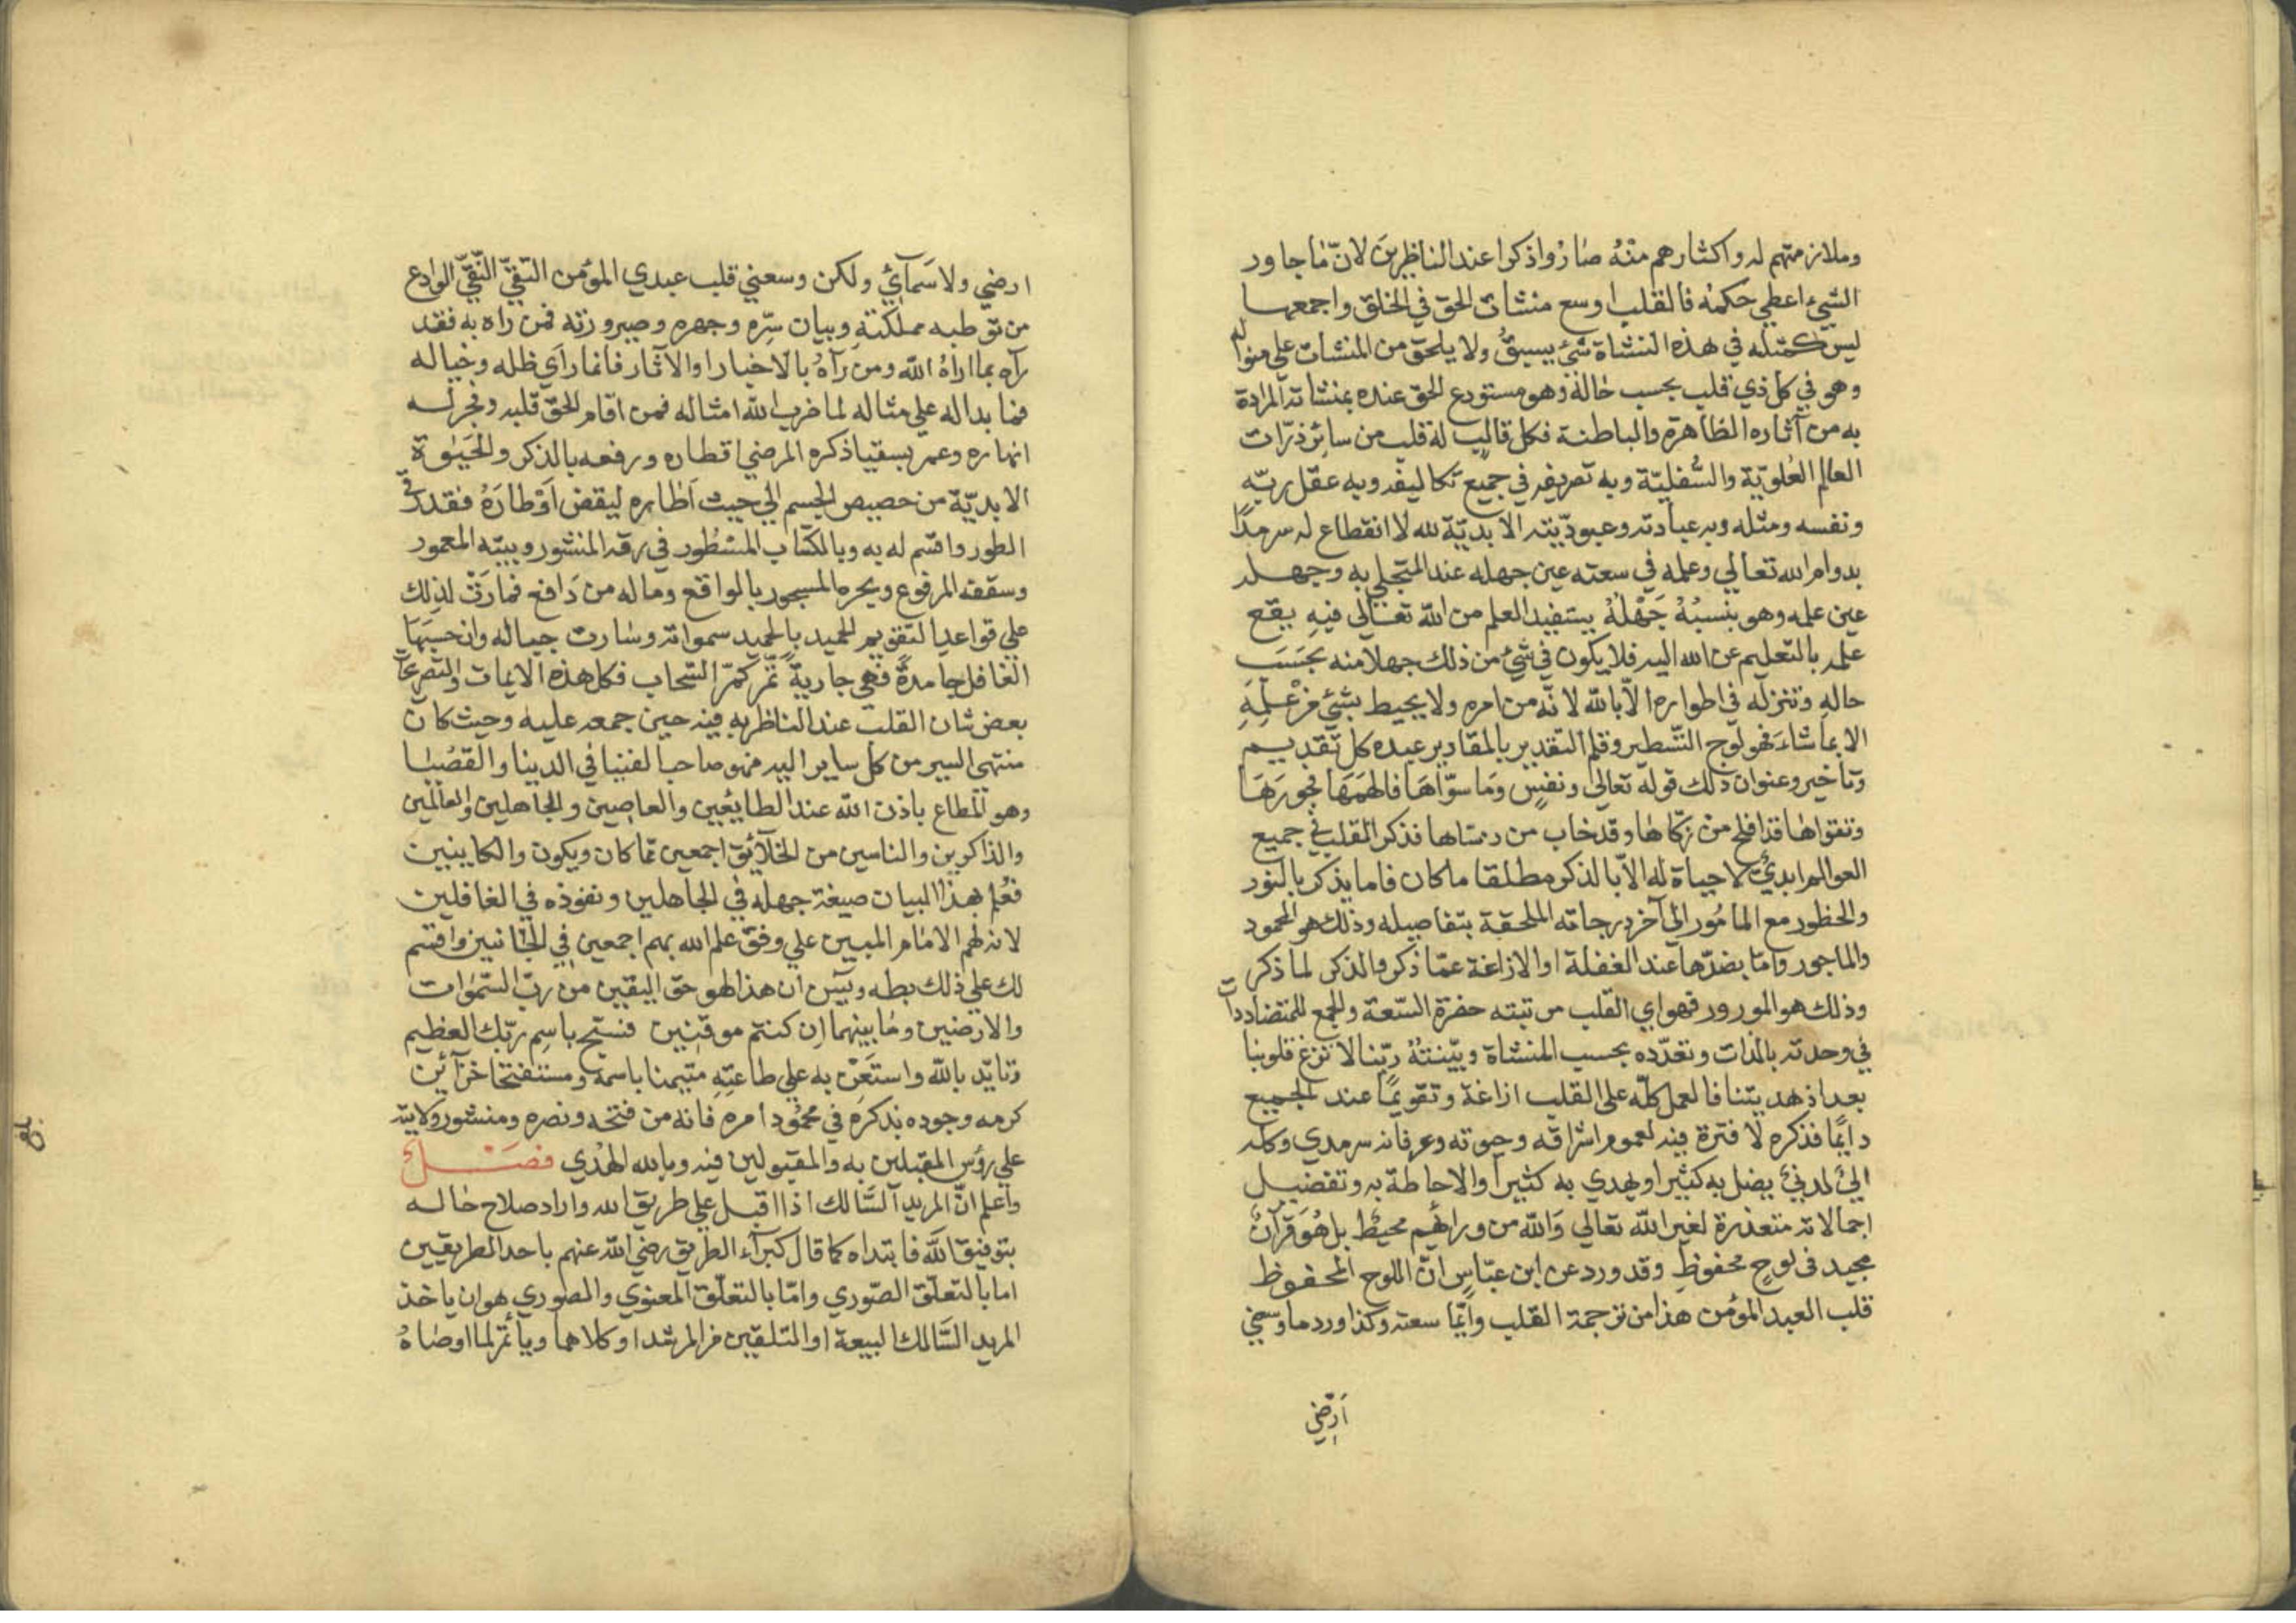 وملازمتهم له واكثارهم منه صاروا ذكرا عند الناظرين لان ما جاور
الشيء اعطي حكمه فالقلب اوسع منشات الحق في الخلق واجمعها
ليس كمثله في هذه النشاة شئ يسبق ولا يلحق من المنشات علي منواله
وهو في كل ذي قلب بحسب حاله وهو مستودع الحق عنده بمنشاته المرادة
به من آثاره الظاهرة والباطنة فكل قالب له قلب من سائر ذرّات
العالم العُلويّة والسُّفليّة وبه تصريفه في جميع تكاليفه وبه عقل ربّه
ونفسه ومثله وبه عبادته وعبوديّته الابديّة لله لا انقطاع له سرمدًا
بدوام الله تعالي وعلمه في سعته عين جهله عند المتجلي به وجهله
عين علمه وهو بنسبة جَهْلهُ يستفيد العلم من الله تعالى فيه يقع
علمه بالتعليم عن الله اليه فلا يكون في شئ من ذلك جهلا منه بحسب
حاله وتنزله في اطواره الاّ بالله لانّه من امره ولا يحيط بشئ من علمه
الا بما شاء فهو لوح التسطير وقلم التقدير بالمقادير عبده كل تقديم
وتاخير وعنوان ذلك قوله تعالى ونفسٍ وما سوّاها فالهمها فجورها
وتقواها قد افلح من زكّاها وقد خاب من دساها فذكر القلب في جميع
العوالم ابديٌّ لا حياة له الاّ بالذكر مطلقا ما كان فاما يذكر بالنور
والحظور مع المامُور الى آخر درجاته الملحقة بتفاصيله وذلك هو المحمود
والماجور وامّا بضدّها عند الغفلة او الازاغة عمّا ذكر والذكر لما ذكر
وذلك هو الموزور فهو اي القلب من تبته حضرة السّعة والجمع للمتضادات
في وحدته بالذات وتعدّده بحسب المنشاة وبيّنتهُ ربّنا لا تزغ قلوبنا
بعد اذ هديتنا فالعمل كلّه على القلب ازاغة وتقويمًا عند الجميع
دايمًا فذكره لا فترة فيه لعموم اشراقه وحيوته وعرفانه سرمدي وكله
الٰهيّ لدنيّ يضل به كثيرا ويهدي به كثيرا والاحاطة به وتفضيل
اجمالاته متعذرة لغير الله تعالي والله من ورائهم محيط بل هُوَ قرآنٌ
مجيد في لوحٍ محفوظٍ وقد ورد عن ابن عبّاسٍ انّ اللوح المحفوظ
قلب العبد المؤمن هذا من ترجمة القلب وامّا سعته وكذا ورد ما وسعني
اَرْضي
ارضي ولا سَمآئي ولكن وسعني قلب عبدي المؤمن التّقيّ النّقيّ الوادع
من توطبه مملكته وبيان سِرّه وجهره وصيرورته فمن راه به فقد
رآه بما اراهُ الله ومن رآهُ بالاخبار او الآثار فانما رآي ظله وخياله
فما بداله علي مثاله لما ضرب الله امثاله فمن اقام للحق قلبه وفجر له
انهاره وعمر بسقيا ذكره المرضي اقطاره ورفعه بالذكر والحَيٰوة
الابديّة من حصيص الجسم الي حيث اَطاره ليقض اَوْطارَهُ فقد رقي
الطور واقسم له به وبالكتاب المسْطُور في رقه المنشور وبيته المعمور
وسقفه المرفوع وبحره المسجور بالواقع وماله من دَافع فمارَتْ لذلك
علي قواعد التقويم الحميد بالحميد سمواته وسارت جباله وان حسبها
الغافل جامدةً فهي جاريةً تمّر كمرّ السّحاب فكل هذه الايمات والتصرعات
بعض شان القلب عند الناظر به فيه حين جمعه عليه وحيث كان
منتهي السير من كل ساير اليه فهو صاحب الفنيا في الدينا والقُصْيا
وهو المطاع باذن الله عند الطايعين والعاصين والجاهلين والعالمين
والذاكرين والناسين من الخلآئق اجمعين ممّا كان ويكون والكاينين
فعُلم بهذا البيان صبغة جهله في الجاهلين ونفوذه في الغافلين
لانه لهم الامام المبين علي وفق علم الله بهم اجمعين في الجانبين واقسم
لك علي ذلك بطه ويسٓ ان هذا لهو حق اليقين من ربّ السّموٰات
والارضين وما بينهما ان كنتم موقنين فسبّح باسم ربّك العظيم
وتايّد بالله واستَعِنْ به علي طاعته متيمنا باسمه ومستفتحا خزآئن
كرمه وجوده بذكره في محمُود امره فانه من فتحه ونصره ومنشور ولايته
علي رؤس المقبلين به والمقبولين فيه وبالله الهُدي فصَـــل
واعلم انّ المريد السَّالك اذا اقبل علي طريق الله واراد صلاح حاله
بتوفيق الله فابتداه كما قال كبرآء الطريق رضي الله عنهم باحد الطريقين
اما بالتعلّق الصّوري وامّا بالتعلّق المعنوي والصوري هو ان ياخذ
المريد السَّالك البيعة او التلقين من المرشد او كلاهما ويأتمر لما اوصاهُ
بلغ